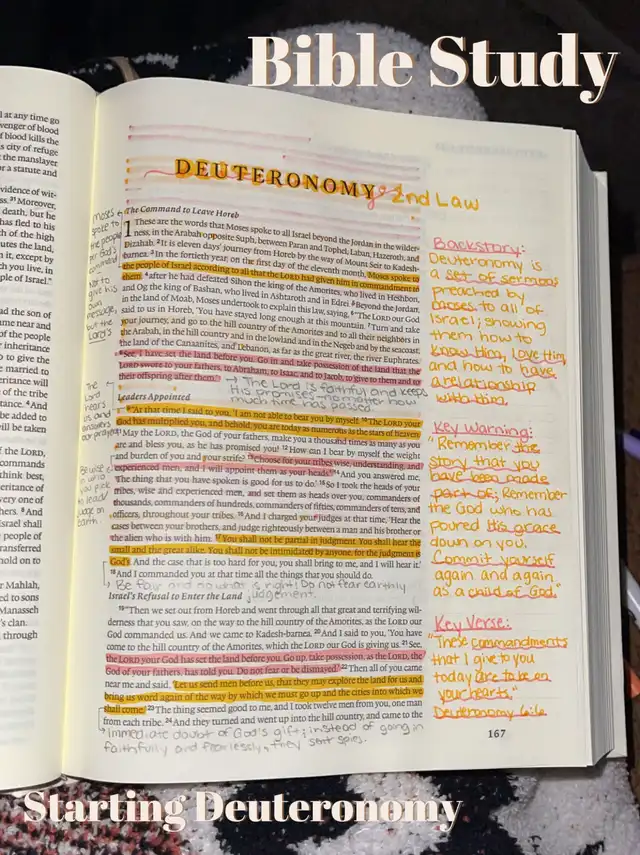 Bible Study
l at any time go
venger of blood
f blood kills the
s city of refuge
the manslayer
r a statute and
vidence of wit-
Moreover,
death, but he
has fled to his
th of the high
utes the land,
n it, except by
ch you live, in
ple of Israel."
ad the son of
me near and
of the people
inheritance
to give the
married to
eritance will
of the tribe
stance. And
be added to
ill be taken
f the LORD,
commands
think best,
heritance of
very one of
hers. And
Israel shall
e people of
transferred
hold on to
r Mahlah,
ed to sons
Manasseh
's clan.
through
DEUTERONOMY
2nd Law
The Command to Leave Horeb
1 These are the words that Moses spoke to all Israel beyond the Jordan in the wilder-
ness, in the Arabah opposite Suph, between Paran and Tophel, Laban, Hazeroth, and
Dizahab. 2 It is eleven days' journey from Horeb by the way of Mount Seir to Kadesh-
barnea. 3 In the fortieth year, on the first day of the eleventh month, Moses spoke to
the people of Israel according to all that the LORD had given him in commandment to
them, 4 after he had defeated Sihon the king of the Amorites, who lived in Heshbon,
and Og the king of Bashan, who lived in Ashtaroth and in Edrei. 5 Beyond the Jordan,
in the land of Moab, Moses undertook to explain this law, saying, 6 "The LORD our God
said to us in Horeb, 'You have stayed long enough at this mountain. 7 Turn and take
your journey, and go to the hill country of the Amorites and to all their neighbors in
the Arabah, in the hill country and in the lowland and in the Negeb and by the seacoast,
the land of the Canaanites, and Lebanon, as far as the great river, the river Euphrates.
8 See, I have set the land before you. Go in and take possession of the land that the
LORD swore to your fathers, to Abraham, to Isaac, and to Jacob, to give to them and to
their offspring after them.'
The Lord is faithful and keeps
His promises no matter how
much time has passed
Leaders Appointed
9 "At that time I said to you, 'I am not able to bear you by myself. 10 The LORD your
God has multiplied you, and behold, you are today as numerous as the stars of heaven.
11 May the LORD, the God of your fathers, make you a thousand times as many as you
are and bless you, as he has promised you! 12 How can I bear by myself the weight
and burden of you and your strife? 13 Choose for your tribes wise, understanding, and
experienced men, and I will appoint them as your heads.' 14 And you answered me,
'The thing that you have spoken is good for us to do.' 15 So I took the heads of your
tribes, wise and experienced men, and set them as heads over you, commanders of
thousands, commanders of hundreds, commanders of fifties, commanders of tens, and
officers, throughout your tribes. 16 And I charged your judges at that time, 'Hear the
cases between your brothers, and judge righteously between a man and his brother or
the alien who is with him. 17 You shall not be partial in judgment. You shall hear the
small and the great alike. You shall not be intimidated by anyone, for the judgment is
God's. And the case that is too hard for you, you shall bring to me, and I will hear it.'
18 And I commanded you at that time all the things that you should do.
Be fair and do what is right! Do not fear earthly
judgement.
Israel's Refusal to Enter the Land
19 "Then we set out from Horeb and went through all that great and terrifying wil-
derness that you saw, on the way to the hill country of the Amorites, as the LORD our
God commanded us. And we came to Kadesh-barnea. 20 And I said to you, 'You have
come to the hill country of the Amorites, which the LORD our God is giving us. 21 See,
the LORD your God has set the land before you. Go up, take possession, as the LORD, the
God of your fathers, has told you. Do not fear or be dismayed.' 22 Then all of you came
near me and said, 'Let us send men before us, that they may explore the land for us and
bring us word again of the way by which we must go up and the cities into which we
shall come.' 23 The thing seemed good to me, and I took twelve men from you, one man
from each tribe. 24 And they turned and went up into the hill country, and came to the
immediate doubt of God's gift; instead of going in
faithfully and fearlessly, they sent spies.
Moses
spoke to
the people
for God's
command
Not to
give his
own
message,
but the
Lord's
The
Lord
hears us
and
answers
our prayers
Be wise
in who
you pick
to lead/
judge on
earth.
Backstory:
Deuteronomy is
a set of sermons
preached by
Moses to all of
Israel; showing
them how to
know Him, love Him,
and how to have
a relationship
with Him.
Key Warning:
"Remember the
story that you
have been made
part of; Remember
the God who has
poured His grace
down on you.
Commit yourself
again and again
as a child of God."
Key Verse:
"These commandments
that I give to you
today are to be on
your hearts."
Deuteronomy 6:6
167
Starting Deuteronomy